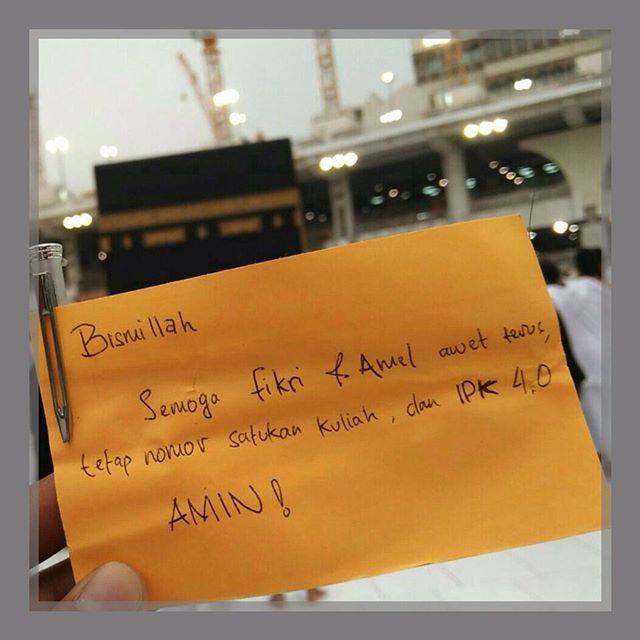 Bismillah
Semoga fikri & Amel awet terus,
tetap nomor satukan kuliah, dan IPK 4.0
AMIN!